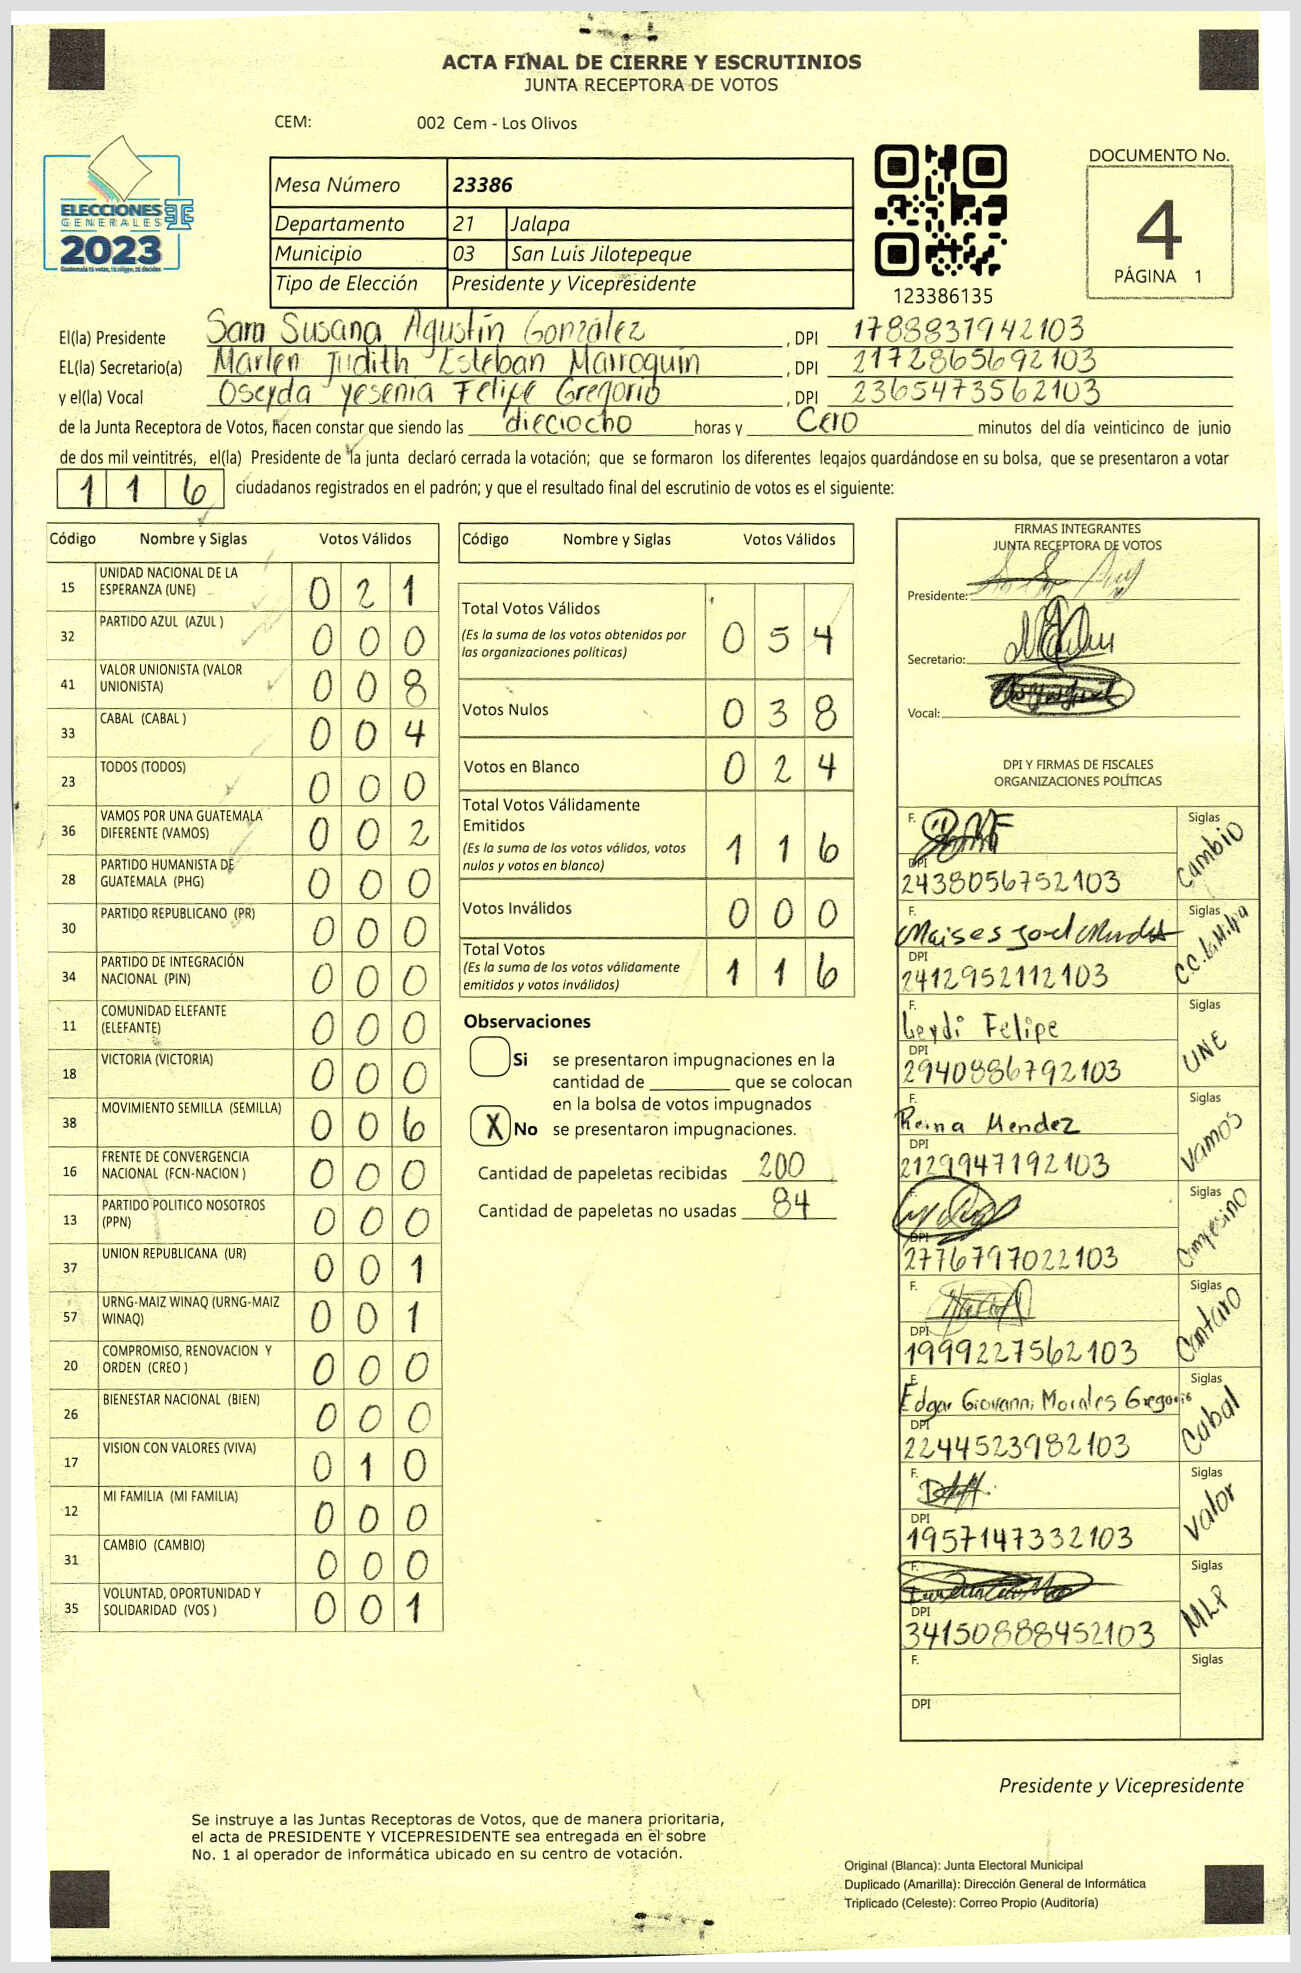 ACTA FINAL DE CIERRE Y ESCRUTINIOS
JUNTA RECEPTORA DE VOTOS
CEM: 002 Cem - Los Olivos
ELECCIONES
GENERALES
2023
Mesa Número 23386
Departamento 21 Jalapa
Municipio 03 San Luis Jilotepeque
Tipo de Elección Presidente y Vicepresidente
123386135
DOCUMENTO No.
4
PÁGINA 1
El(la) Presidente Sara Susana Agustín González, DPI 1788837942103
EL(la) Secretario(a) Marlen Judith Esteban Marroquin, DPI 2172865692103
y el(la) Vocal Oseyda Yesenia Felipe Gregorio, DPI 2365473562103
de la Junta Receptora de Votos, hacen constar que siendo las dieciocho horas y Cero minutos del día veinticinco de junio
de dos mil veintitrés, el(la) Presidente de la junta declaró cerrada la votación; que se formaron los diferentes legajos guardándose en su bolsa, que se presentaron a votar
116 ciudadanos registrados en el padrón; y que el resultado final del escrutinio de votos es el siguiente:
Código Nombre y Siglas Votos Válidos
15 UNIDAD NACIONAL DE LA ESPERANZA (UNE) 0 2 1
32 PARTIDO AZUL (AZUL ) 0 0 0
41 VALOR UNIONISTA (VALOR UNIONISTA) 0 0 8
33 CABAL (CABAL ) 0 0 4
23 TODOS (TODOS) 0 0 0
36 VAMOS POR UNA GUATEMALA DIFERENTE (VAMOS) 0 0 2
28 PARTIDO HUMANISTA DE GUATEMALA (PHG) 0 0 0
30 PARTIDO REPUBLICANO (PR) 0 0 0
34 PARTIDO DE INTEGRACIÓN NACIONAL (PIN) 0 0 0
11 COMUNIDAD ELEFANTE (ELEFANTE) 0 0 0
18 VICTORIA (VICTORIA) 0 0 0
38 MOVIMIENTO SEMILLA (SEMILLA) 0 0 6
16 FRENTE DE CONVERGENCIA NACIONAL (FCN-NACION ) 0 0 0
13 PARTIDO POLITICO NOSOTROS (PPN) 0 0 0
37 UNION REPUBLICANA (UR) 0 0 1
57 URNG-MAIZ WINAQ (URNG-MAIZ WINAQ) 0 0 1
20 COMPROMISO, RENOVACION Y ORDEN (CREO ) 0 0 0
26 BIENESTAR NACIONAL (BIEN) 0 0 0
17 VISION CON VALORES (VIVA) 0 1 0
12 MI FAMILIA (MI FAMILIA) 0 0 0
31 CAMBIO (CAMBIO) 0 0 0
35 VOLUNTAD, OPORTUNIDAD Y SOLIDARIDAD (VOS ) 0 0 1
Código Nombre y Siglas Votos Válidos
Total Votos Válidos 0 5 4
(Es la suma de los votos obtenidos por
las organizaciones politicas)
Votos Nulos 0 3 8
Votos en Blanco 0 2 4
Total Votos Válidamente
Emitidos 1 1 6
(Es la suma de los votos válidos, votos
nulos y votos en blanco)
Votos Inválidos 0 0 0
Total Votos 1 1 6
(Es la suma de los votos válidamente
emitidos y votos inválidos)
Observaciones
Si se presentaron impugnaciones en la
cantidad de ________ que se colocan
en la bolsa de votos impugnados
X No se presentaron impugnaciones.
Cantidad de papeletas recibidas 200
Cantidad de papeletas no usadas 84
FIRMAS INTEGRANTES
JUNTA RECEPTORA DE VOTOS
Presidente:
Secretario:
Vocal:
DPI Y FIRMAS DE FISCALES
ORGANIZACIONES POLÍTICAS
F. Siglas Cambio
DPI 2438056752103
F. Moises Joel Siglas
DPI 2412952112103
F. Leydi Felipe Siglas UNE
DPI 2940886792103
F. Reina Mendez Siglas Vamos
DPI 2129947192103
F. Siglas Campesino
DPI 2776797022103
F. Siglas Cantaro
DPI 1999227562103
F. Edgar Giovanni Morales Gregorio Siglas Cabal
DPI 2244523982103
F. Siglas Valor
DPI 1957147332103
F. Siglas MLP
DPI 34150888452103
F. Siglas
DPI
Presidente y Vicepresidente
Se instruye a las Juntas Receptoras de Votos, que de manera prioritaria,
el acta de PRESIDENTE Y VICEPRESIDENTE sea entregada en el sobre
No. 1 al operador de informática ubicado en su centro de votación.
Original (Blanca): Junta Electoral Municipal
Duplicado (Amarilla): Dirección General de Informática
Triplicado (Celeste): Correo Propio (Auditoría)